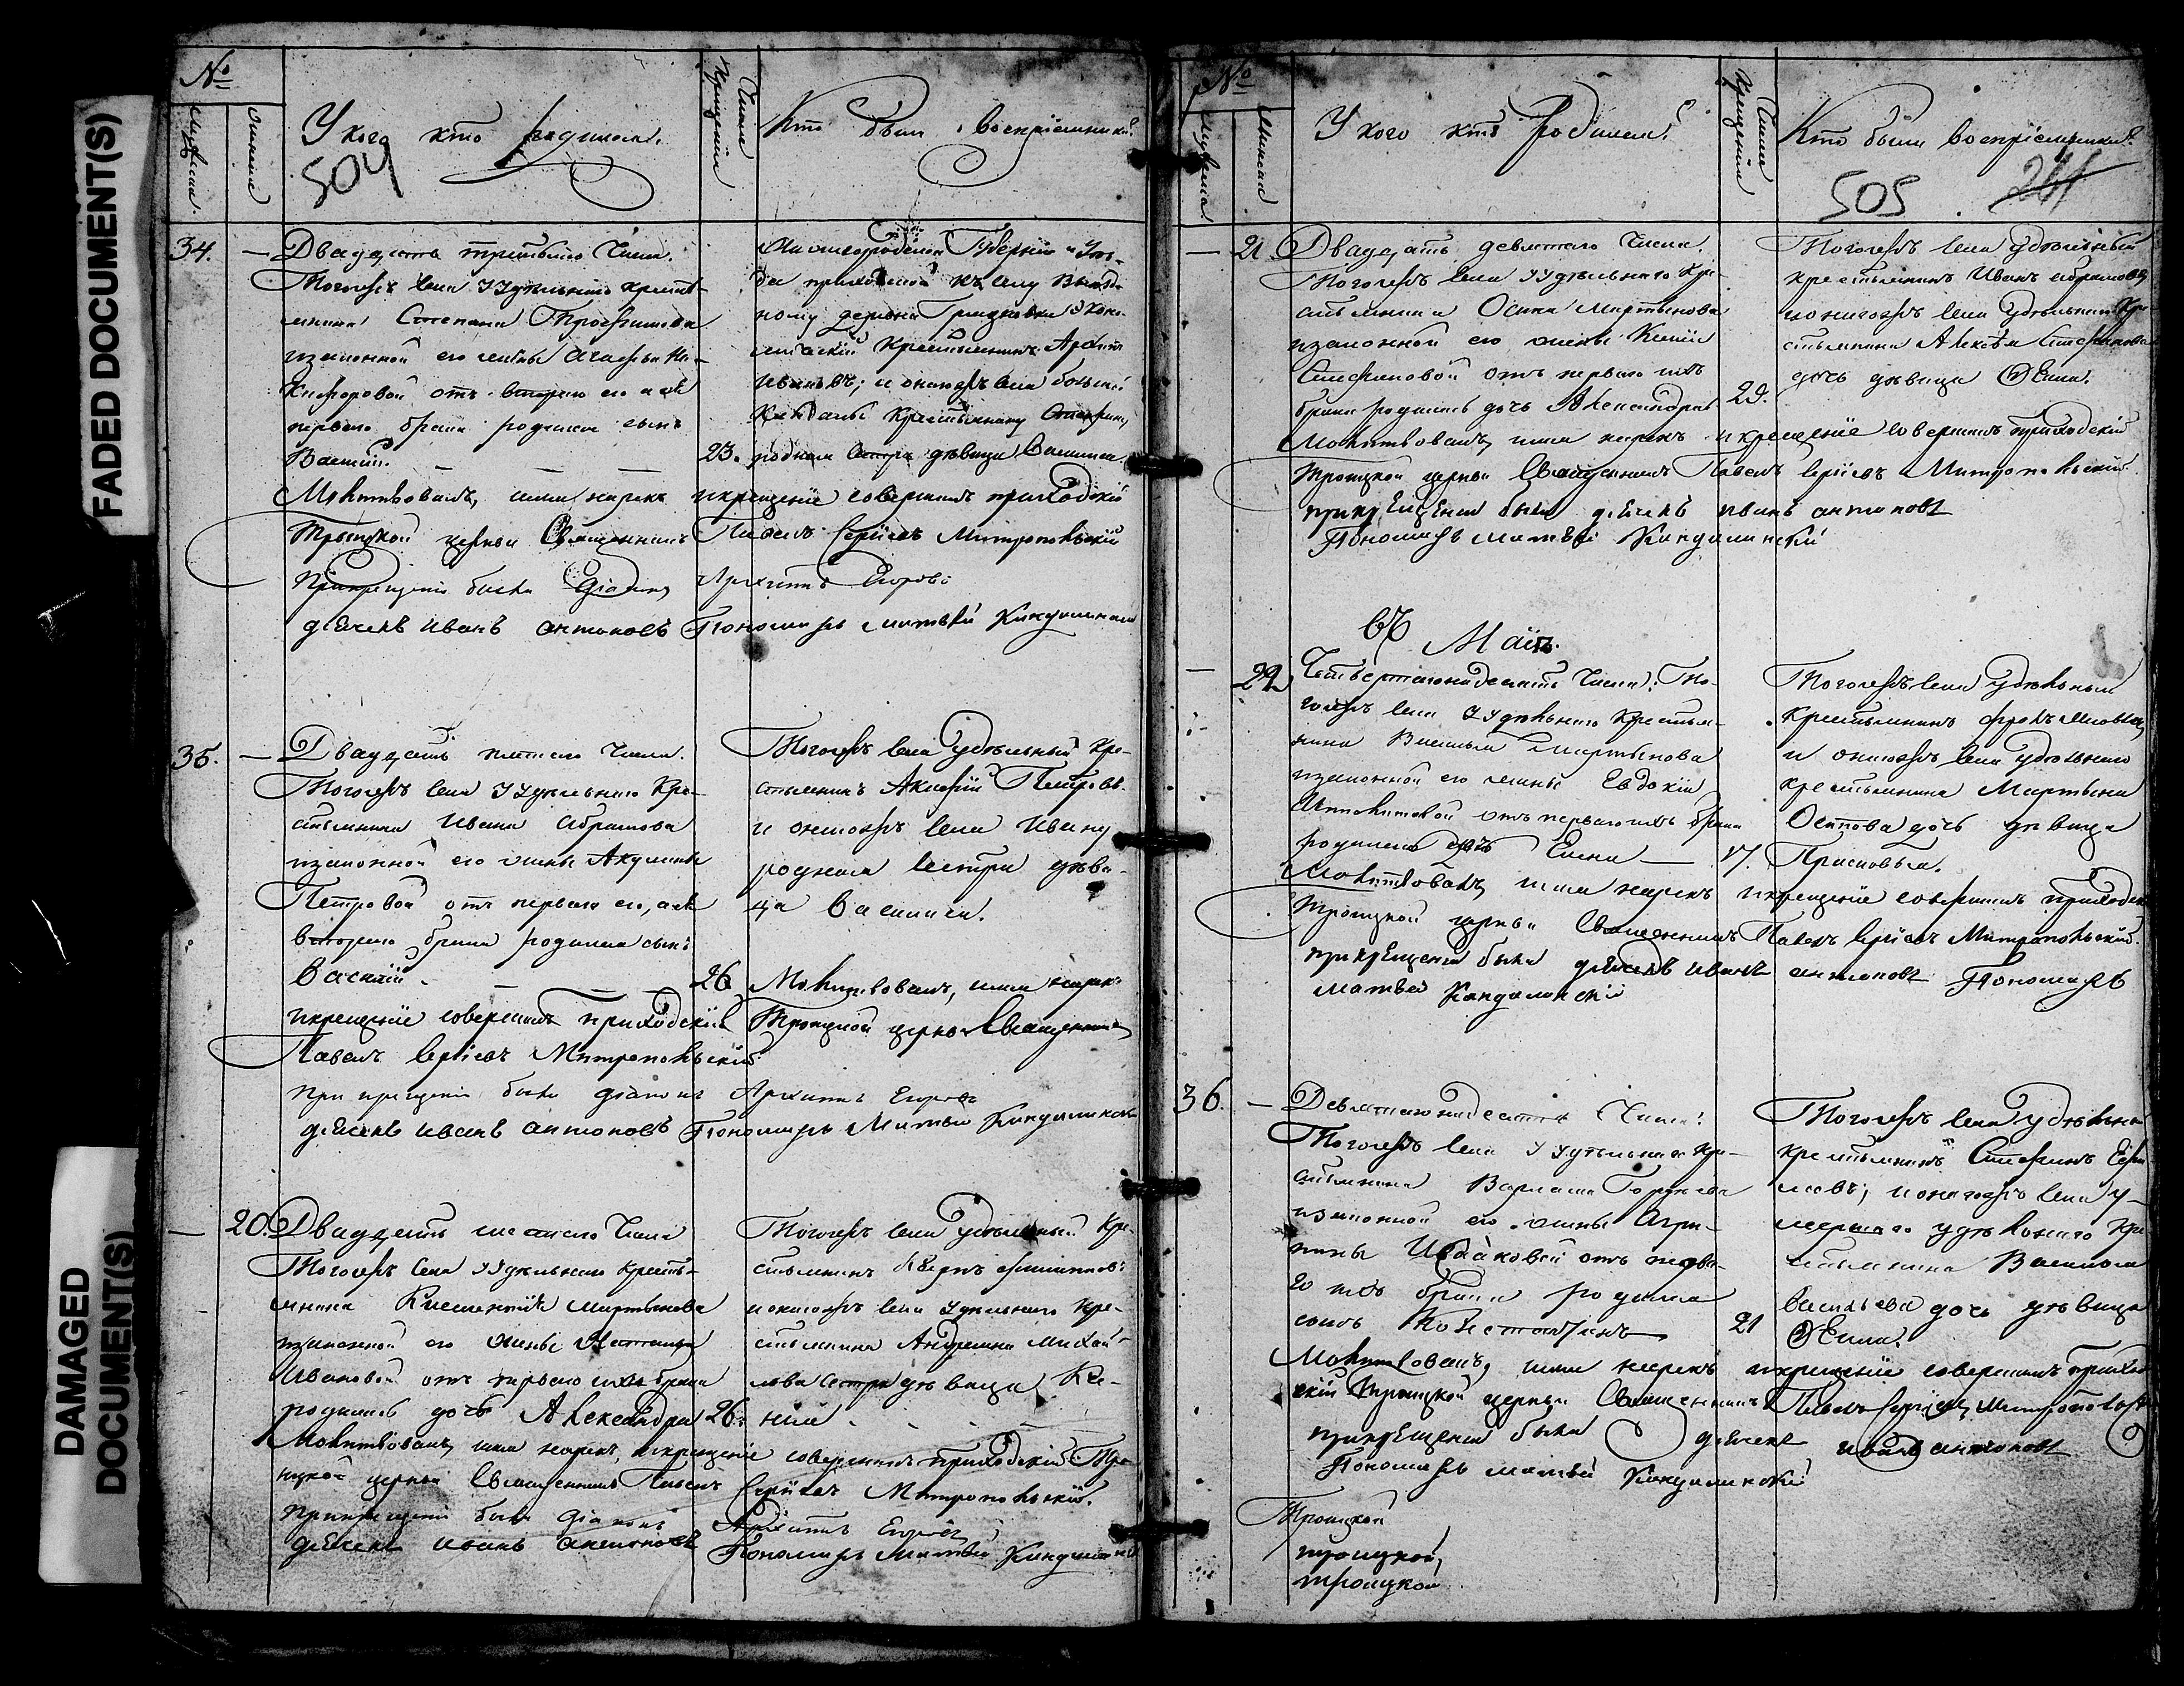 FADED DOCUMENT(S)
DAMAGED DOCUMENT(S)
№
Мужеска.
Женска
У кого кто родился.
504
Число Крещенія
Кто были воспріемники?
34. — Двадцать третьяго Числа.
Тогожъ села Удѣльнаго крестья-
нина Степана Трофимова
изаконной его жены Агафьи Ни-
кифоровой отъ втораго его а ея
перваго брака родился сынъ
Василій. — — — 23.
Нижегородской Губерніи и Уѣз-
да приходской къ селу
деревни
крестьянинъ Архипъ
Ивановъ; и онагожъ села
крестьянину
родная сестра дѣвица Василиса
Молитвовалъ, имя нарекъ икрещеніе совершилъ приходскій
Троицкой церкви Священникъ Павелъ Сергіевъ Митропольскій
Прикрещеніи были Діаконъ Архипъ Егоровъ
дьячекъ иванъ антоновъ Пономарь Матвей Кандалинскій
35. — Двадцать пятаго Числа.
Тогожъ села Удѣльнаго Кре-
стьянина Ивана Абрамова
изаконной его жены Акулины
Петровой отъ перваго его, а ея
втораго брака родился сынъ
Василій. — — — 26
Тогожъ села Удѣльный кре-
стьянинъ Алексѣй Петровъ.
и онагожъ села Ивану
родная сестра дѣви-
ца Василиса.
Молитвовалъ, имя нарекъ
икрещеніе совершилъ приходскій Троицкой церкви Священникъ
Павелъ Сергіевъ Митропольскій
При крещеніи были діаконъ Архипъ Егоровъ
дьячекъ иванъ антоновъ Пономарь Матвей Кандалинскій
— 20. Двадцать шестаго Числа
Тогожъ села Удѣльнаго крестья-
янина Климентія Мартынова
изаконной его жены Настасьи
Ивановой отъ перваго ихъ брака
родилась дочь Александра 26.
Тогожъ села Удѣльный Кре-
стьянинъ
и онагожъ села Удѣльнаго Кре-
стьянина Андреяна Михай-
лова сестра дѣвица Ксе-
нія.
Молитвовалъ, имя нарекъ, икрещеніе совершилъ приходскій Тро-
ицкой церкви Священникъ Павелъ Сергіевъ Митропольскій.
Прикрещеніи были діаконъ Архипъ Егоровъ
дьячекъ иванъ антоновъ Пономарь Матвей Кандалинскій
№
Мужеска
Женска
У кого кто родился?
Число Крещенія
Кто были воспріемники?
505
261
— 21. Двадцать девятаго Числа.
Тогожъ села Удѣльнаго Кре-
стьянина Осипа Мартынова
изаконной его жены Ксеніи
Стефановой отъ перваго ихъ
брака родилась дочь Александра 29.
Тогожъ села Удѣльный
крестьянинъ Иванъ Абрамовъ
и онагожъ села Удѣльнаго Кре-
стьянина Алексѣя Стефанова
дочь дѣвица Ѳекла.
Молитвовалъ, имя нарекъ икрещеніе совершилъ приходскій
Троицкой церкви Священникъ Павелъ Сергіевъ Митропольскій.
прикрещеніи были дьячекъ иванъ антоновъ
Пономарь матвей Кандалинскій
Въ Маіѣ.
— 22. Четвертагонадесять Числа. То-
гожъ села Удѣльнаго Крестья-
нина Василья Мартынова
изаконной его жены Евдокіи
отъ перваго ихъ брака
родилась дочь Елена — 17.
Тогожъ села Удѣльный
крестьянинъ
и онагожъ села Удѣльнаго
крестьянина Мартына
Осипова дочь дѣвица
Прасковья.
Молитвовалъ, имя нарекъ икрещеніе совершилъ приходскій
Троицкой церкви Священникъ Павелъ Сергіевъ Митропольскій.
прикрещеніи были дьячекъ иванъ антоновъ Пономарь
матвей Кандалинскій
36. — Девятагонадесять Числа.
Тогожъ села Удѣльнаго Кре-
стьянина
изаконной его жены Агри-
пины отъ перва-
го ихъ брака родился
сынъ Константинъ 21
Тогожъ села Удѣльный
крестьянинъ Стефанъ
и онагожъ села у-
мершаго удѣльнаго Кре-
стьянина
Васильева дочь дѣвица
Ѳекла.
Молитвовалъ, имя нарекъ икрещеніе совершилъ приход-
скій Троицкой церкви Священникъ Павелъ Сергіевъ Митропольскій
прикрещеніи были дьячекъ иванъ антоновъ
Пономарь матвей Кандалинскій
Троицкой
троицкой,
троицкой